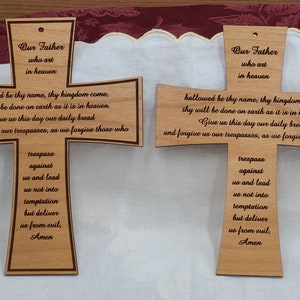 Our Father
who art
in heaven
be thy name, thy kingdom come,
be done on earth as it is in heaven.
us this day our daily bread
our trespasses, as we forgive those who
trespass
against
us and lead
us not into
temptation
but deliver
us from evil,
Amen
Our Father
who art
in heaven
hallowed be thy name, thy kingdom
thy will be done on earth as it is in
Give us this day our daily
and forgive us our trespasses, as we forgive
trespass
against
us and lead
us not into
temptation
but deliver
us from evil,
Amen